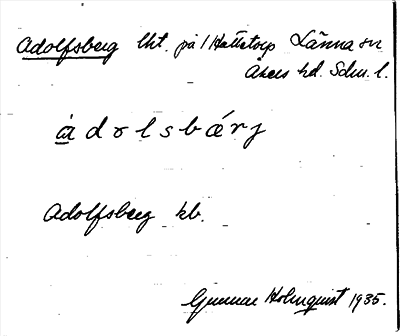 Adolfsberg lht. på 1 Hattetorp Länna sn
Åkers hd. Sdm. l.
ȧdɷlsbǽrj
Adolfsberg kb.
Gunnar Holmquist 1935.